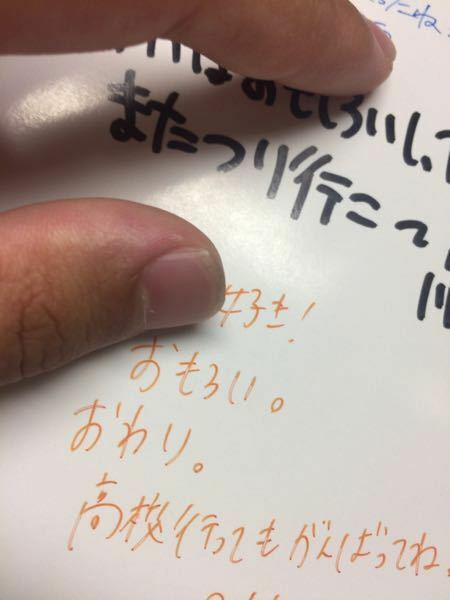 はおもしろいし、
またつり行こ〜
好き!
おもろい。
おわり。
高校行ってもがんばってね。